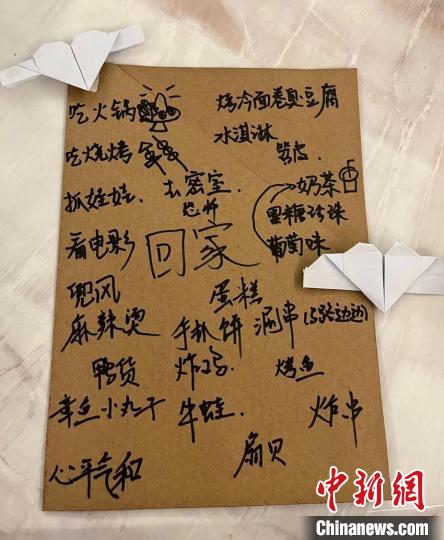 吃火锅 烤冷面卷臭豆腐
吃烧烤 冰淇淋
抓娃娃、去密室 奶茶
恐怖 黑糖珍珠
看电影 回家 葡萄味
兜风 蛋糕
麻辣烫 手抓饼 涮串
鸭货 炸鸡 烤鱼
章鱼小丸子 牛蛙 炸串
心平气和 扇贝
中新网
Chinanews.com